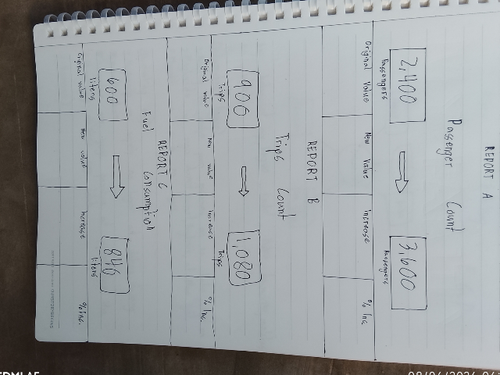 REPORT A
Passenger Count
2,400
Passengers
3,600
Passengers
Original Value
New Value
Increase
% Inc.
REPORT B
Trips Count
900
Trips
1,080
Trips
Original value
New value
Increase
% Inc.
REPORT C
Fuel Consumption
600
liters
846
liters
Original value
New value
Increase
% Inc.